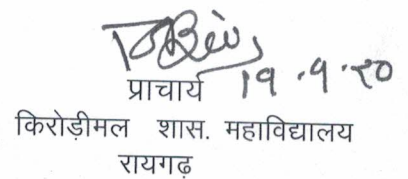 प्राचार्य 19.9.20
किरोड़ीमल शास. महाविद्यालय
रायगढ़